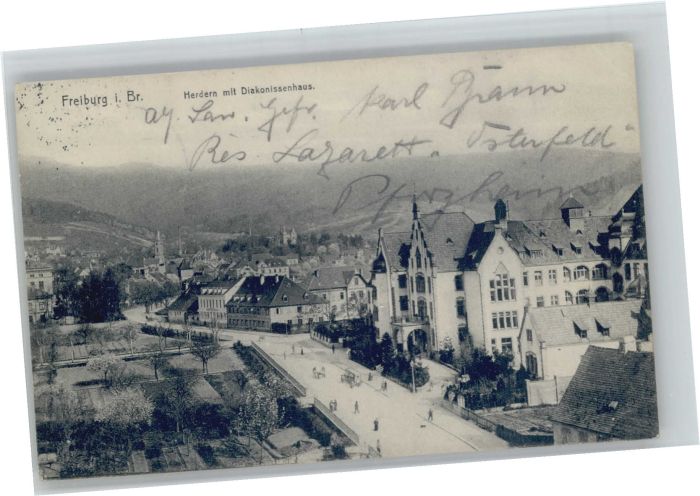 Freiburg i. Br.
Herdern mit Diakonissenhaus.
an San. Gefr. Karl Braun
Res. Lazarett. Osterfeld
Pforzheim